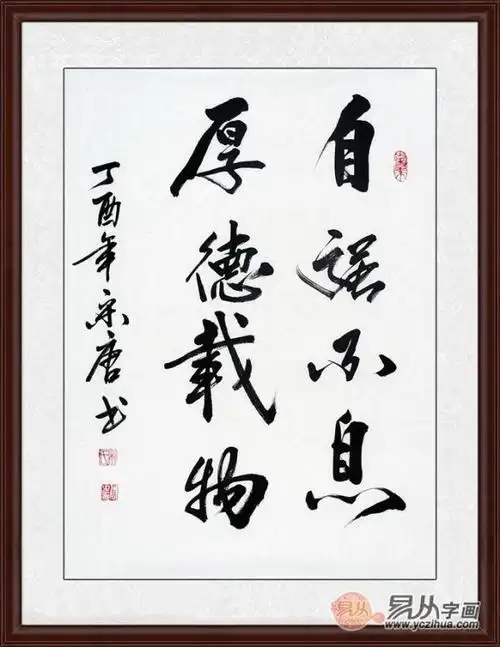 自强不息
厚德載物
丁酉年宋唐书
易从
易从字画
www.yczihua.com